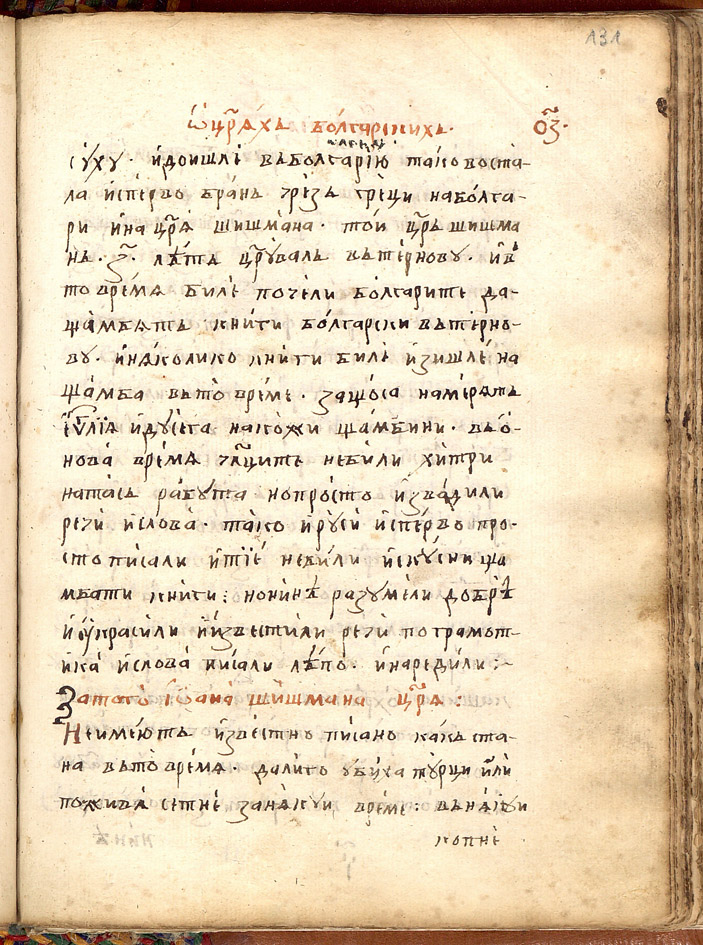 131
Ѡ цр҃ѧхъ болгарскихъ. о҃з.
суху. и́дошлѐ въболгарїю̀ тако воста-
ла и́сперво бранъ чрезъ греци наболга-
ри и́на цр҃ѧ̀ шишмана. тои цр҃ъ шишма
нъ. з҃. лѣтъ цр҃увалъ вътерно̀ву. и́въ
то времѧ билѐ почели болгарите да-
щамбѧтъ книги болгарски вътерно-
ву. и́нѧколико книги билѐ и́зишлѐ на
щамба въто време. защо́са намерѧтъ
еѵ҃лїѧ и́дꙋсега накожи щамбини. въо́-
нова времѧ чл҃ците небили хитри
натаѧ работа нопросто и́звадили
речи и́слова. тако и́рꙋси и́сперво про-
сто писали и́тїѐ небили и́скусни ща
мбати книги: нонинѣ разумели добрѣ
и́ꙋкрасили и́и́звестили речи пограмот-
ика̀ и́слова писали лѣпо. и́наредили:~
Затого̀ Іѡана шишмана цр҃ѧ̀:
Неимеютъ и́звестно писано какъ ста-
на въто времѧ. далиго убиха турци и҆лѝ
поживѧ сетне занѧкуи време: вънѧкуи
копие